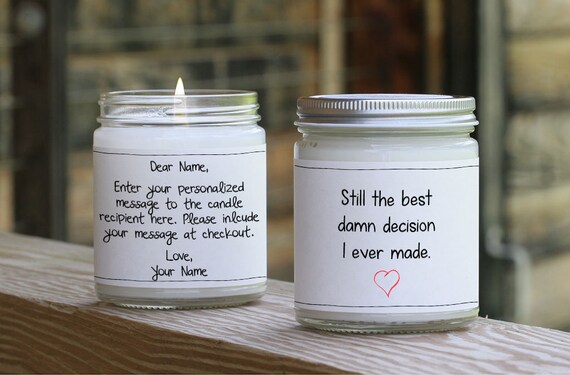 Dear Name,
Enter your personalized
message to the candle
recipient here. Please inlcude
your message at checkout.
Love,
Your Name
Still the best
damn decision
I ever made.